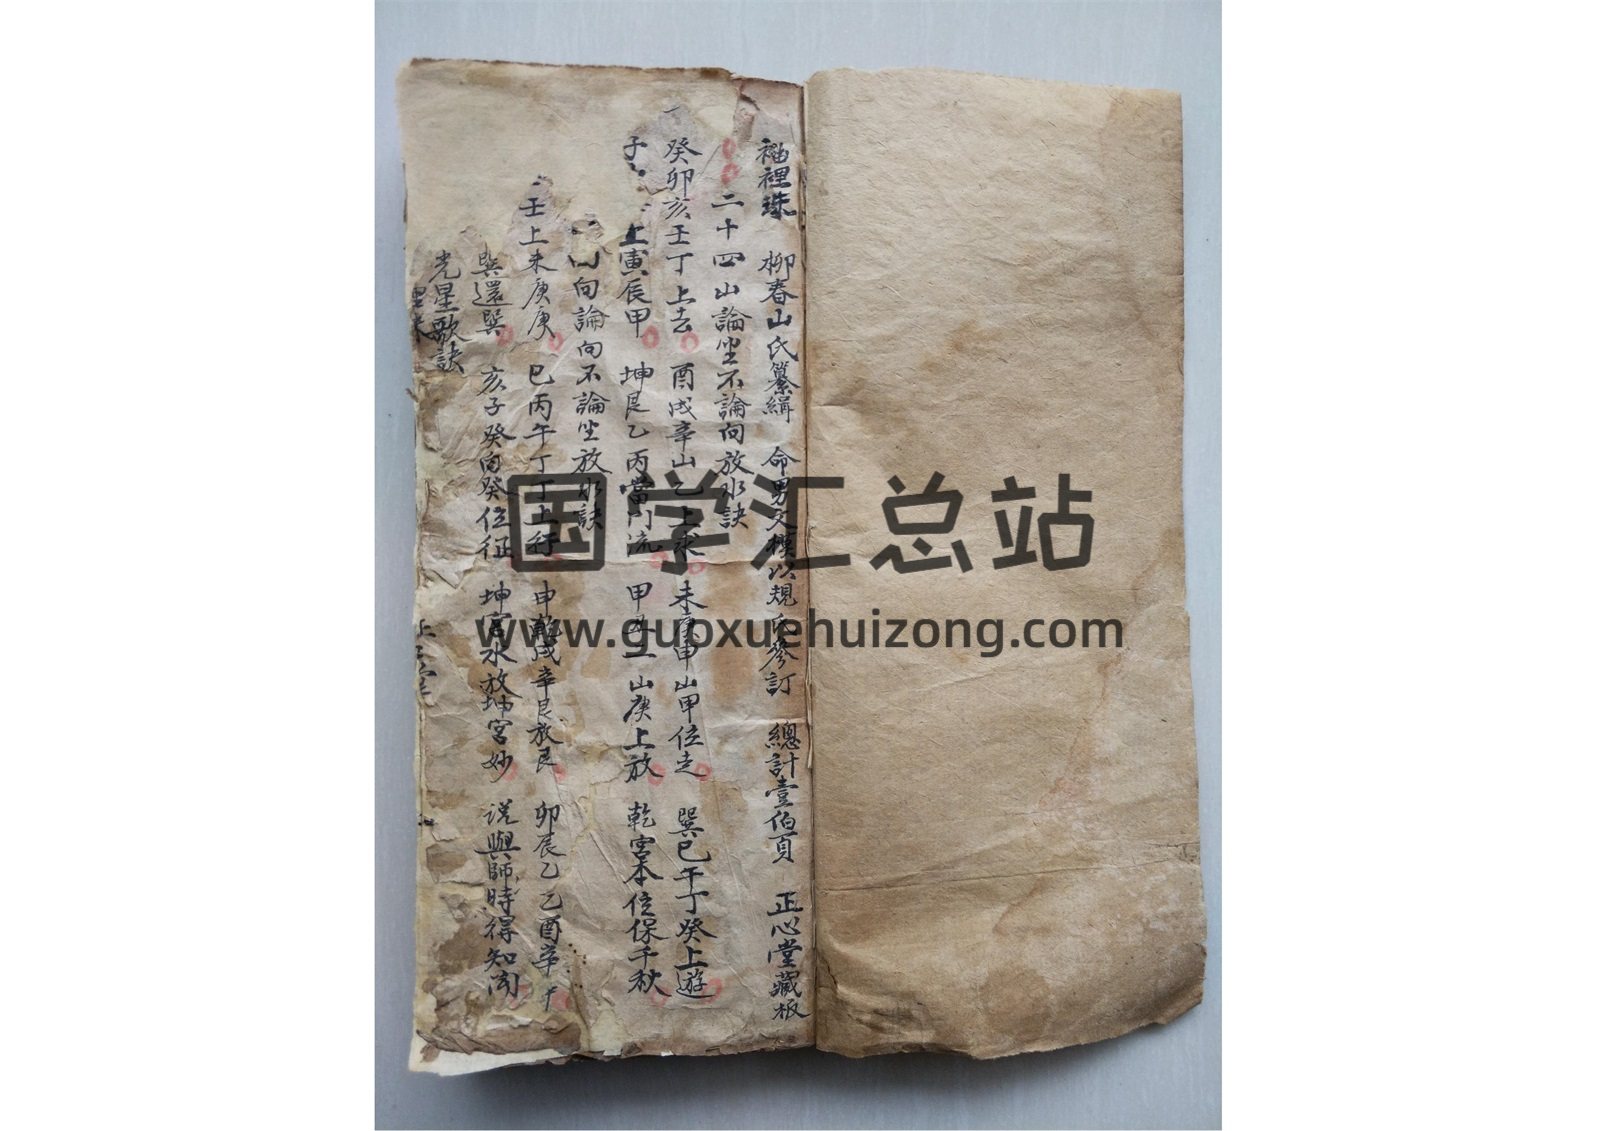 袖裡珠 柳春山氏纂緝 命男文模以規氏參訂 總計壹佰頁 正心堂藏板
二十四山論坐不論向放水訣
癸卯亥壬丁上去 酉戌辛山乙上求 未庚申山甲位走 巽巳午丁癸上遊
子 上寅辰甲 坤艮乙丙當門流 甲 山庚上放 乾宮本位保千秋
向論向不論坐放水訣
壬上未庚庚 巳丙午丁丁上行 申乾戌辛艮放艮 卯辰乙乙酉辛
巽還巽 亥子癸向癸位征 坤宮水放坤宮妙 说與師時得知闻
光星歌訣
国学汇总站
www.guoxuehuizong.com